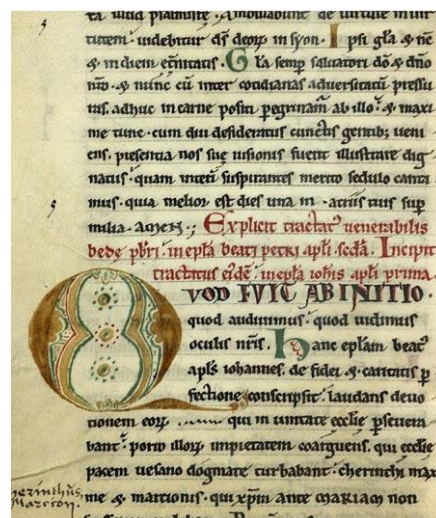 ta illud psalmiste. Ambulabunt de uirtute in uir
tutem. uidebitur ds deorꝝ in syon. Ipsi gla & nc̄
& in diem et̄nitatis. Gla semp saluatori dō & dño
nr̄o. & nunc cū int̄ cotidianas aduersitatū pressu
ras. adhuc in carne positi p̲egrinam̄ ab illo. & maxi
me tunc. cum diu desideratus cunctis gentib; ueni
ens. presentia nos sue uisionis fuerit illustrare dig
natus. quam inteř suspirantes merito sedulo canta
mus. quia melior est dies una in atriis tuis sup
milia. amen.
Explicit tractat᷒ uenerabilis
bede pb̄ri. in ep̄la beati petri ap̄li sc̄da. Incipit
tractatus eidē in ep̄la ioh̄is ap̄li prima.
QVOD FVIT AB INITIO.
quod audiuimus. quod uidimus
oculis nr̄is. Hanc ep̄lam beat᷒
apl̄s iohannes. de fidei & caritatis p̲
fectione conscripsit. laudans deuo
tionem eorꝝ qui in unitate eccl̄ie p̲seuera
bant. porro illorꝝ impietatem coarguens. qui eccl̄ie
pacem uesano dogmate turbabant. cherinthi max
me & martionis. qui xp̄m ante mariam non
cherinthus,
Marcion.